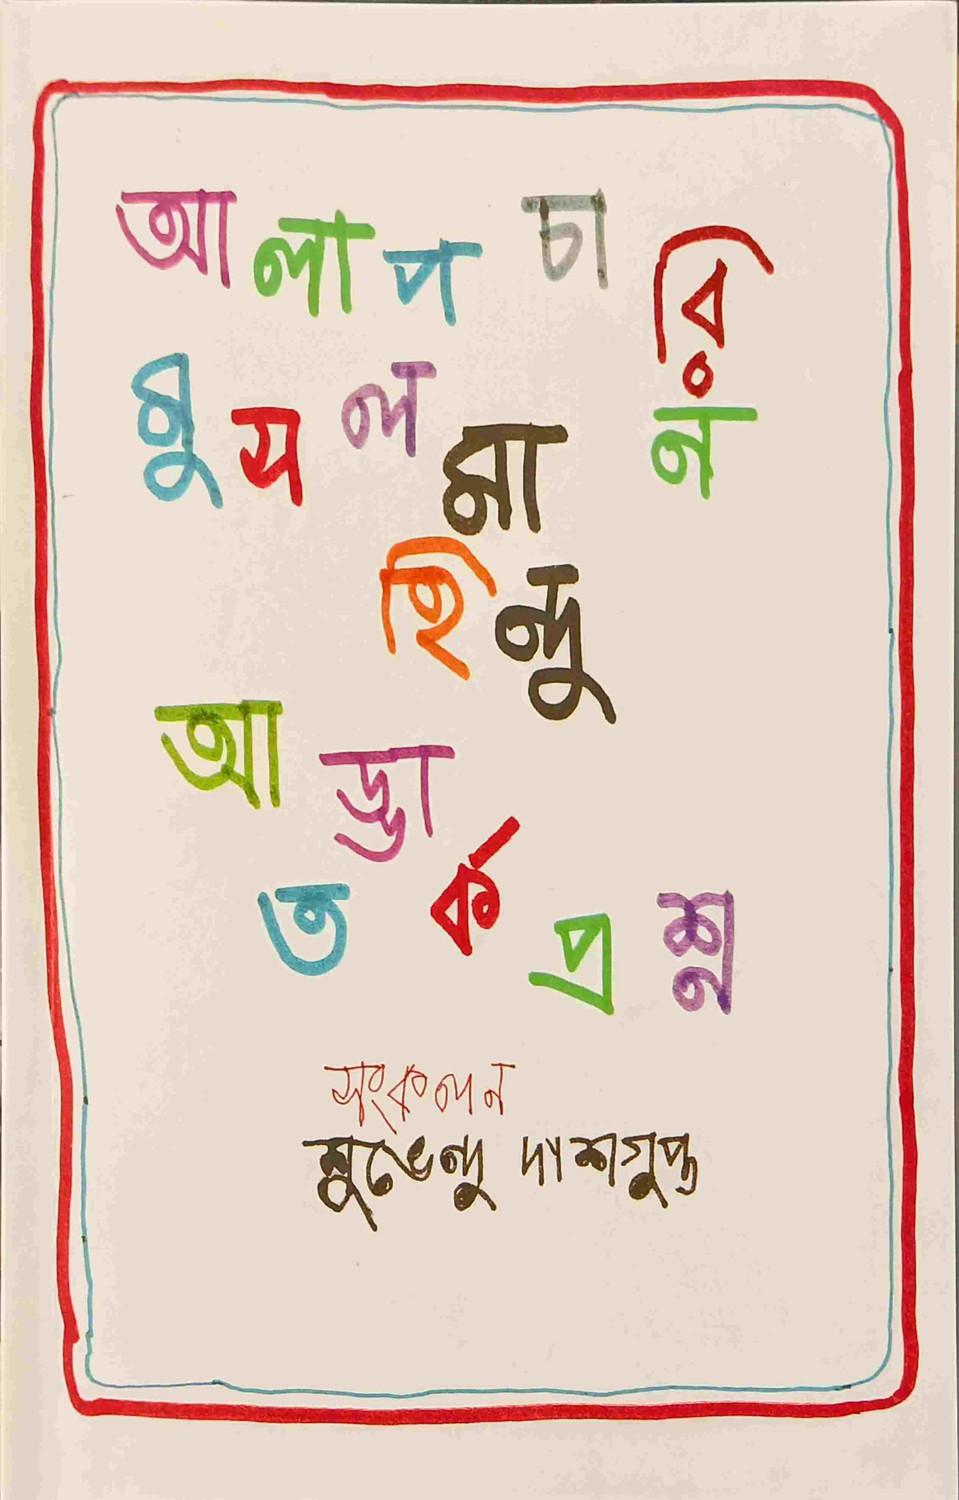 আলাপ চারি
মুসলমান
হিন্দু
আড্ডা
তর্ক প্রশ্ন
সংকলন
শুভেন্দু দাশগুপ্ত